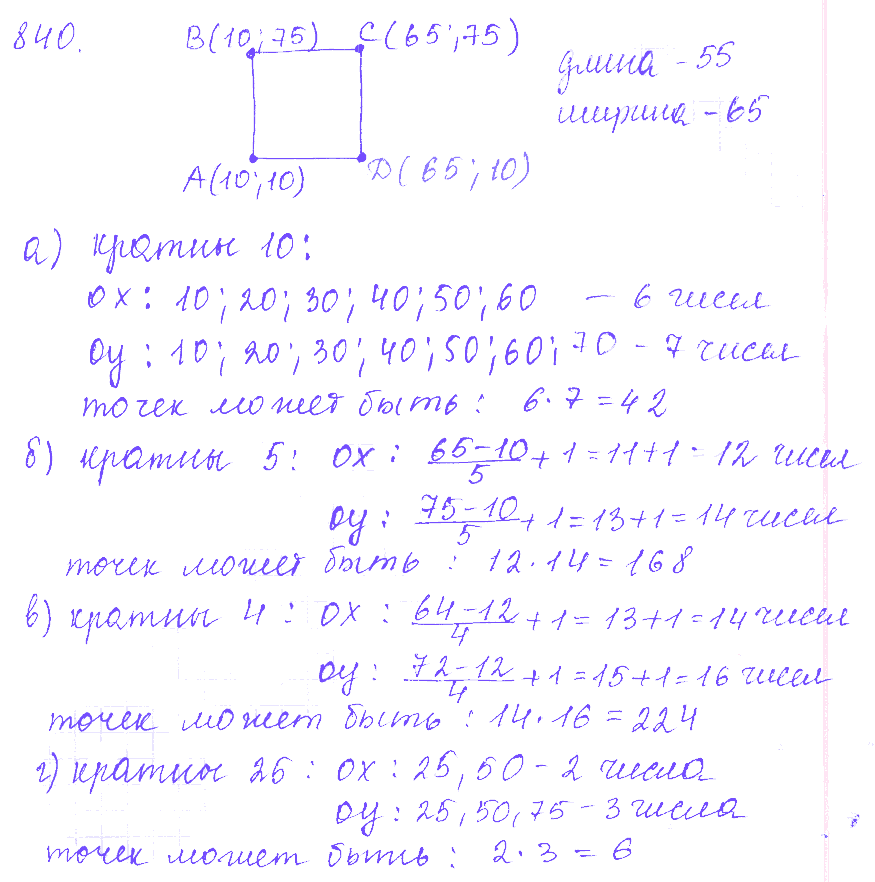 840.
B(10;75) C(65;75)
длина - 55
ширина - 65
A(10;10) D(65;10)
а) кратны 10:
ox: 10; 20; 30; 40; 50; 60 — 6 чисел
oy: 10; 20; 30; 40; 50; 60; 70 - 7 чисел
точек может быть: 6·7=42
б) кратны 5: ox: (65-10)/5 + 1 = 11+1 = 12 чисел
oy: (75-10)/5 + 1 = 13+1 = 14 чисел
точек может быть: 12·14=168
в) кратны 4: ox: (64-12)/4 + 1 = 13+1 = 14 чисел
oy: (72-12)/4 + 1 = 15+1 = 16 чисел
точек может быть: 14·16=224
г) кратны 25: ox: 25, 50 - 2 числа
oy: 25, 50, 75 - 3 числа
точек может быть: 2·3=6